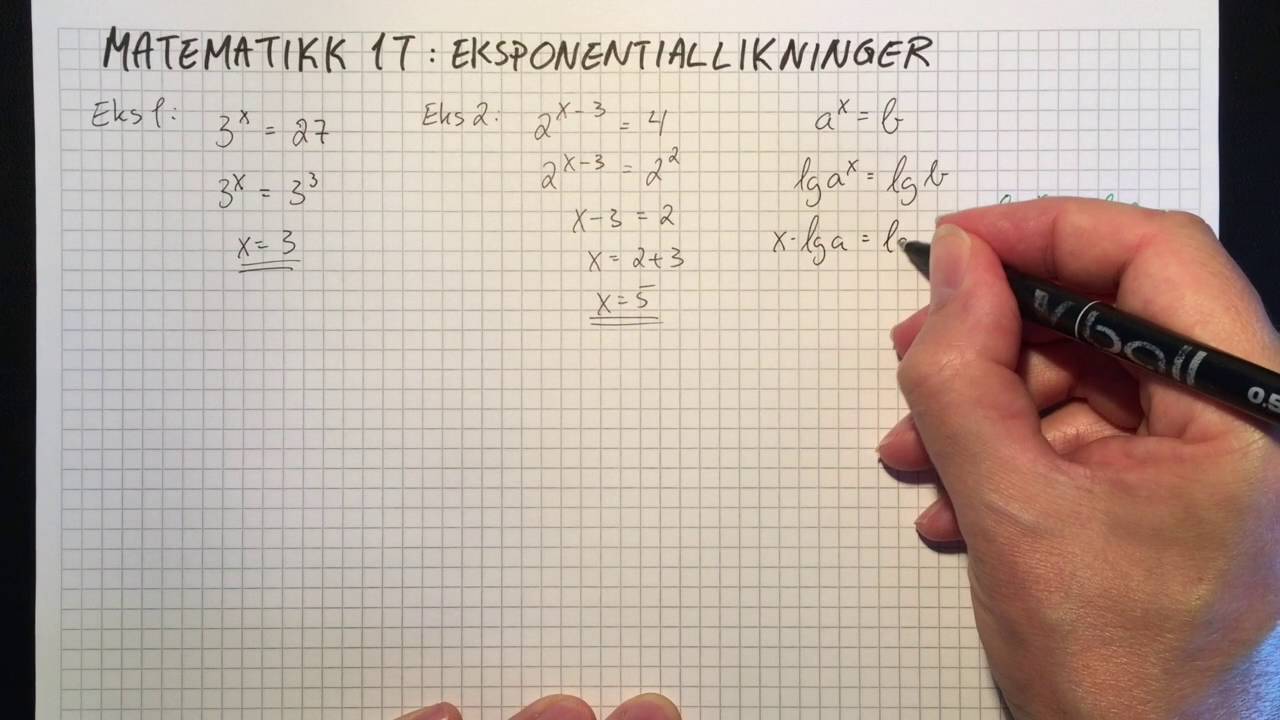 MATEMATIKK 1T: EKSPONENTIALLIKNINGER
Eks 1:
3^x = 27
3^x = 3^3
x = 3
Eks 2:
2^(x-3) = 4
2^(x-3) = 2^2
x-3 = 2
x = 2+3
x = 5
a^x = b
lg a^x = lg b
x · lg a = lg
ball
0.5